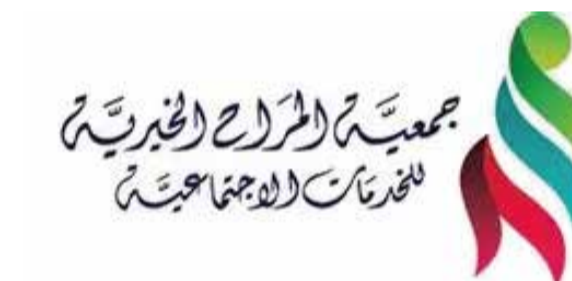 جمعيَّة المَراح الخيريَّة
للخدمَات الاجتماعيَّة